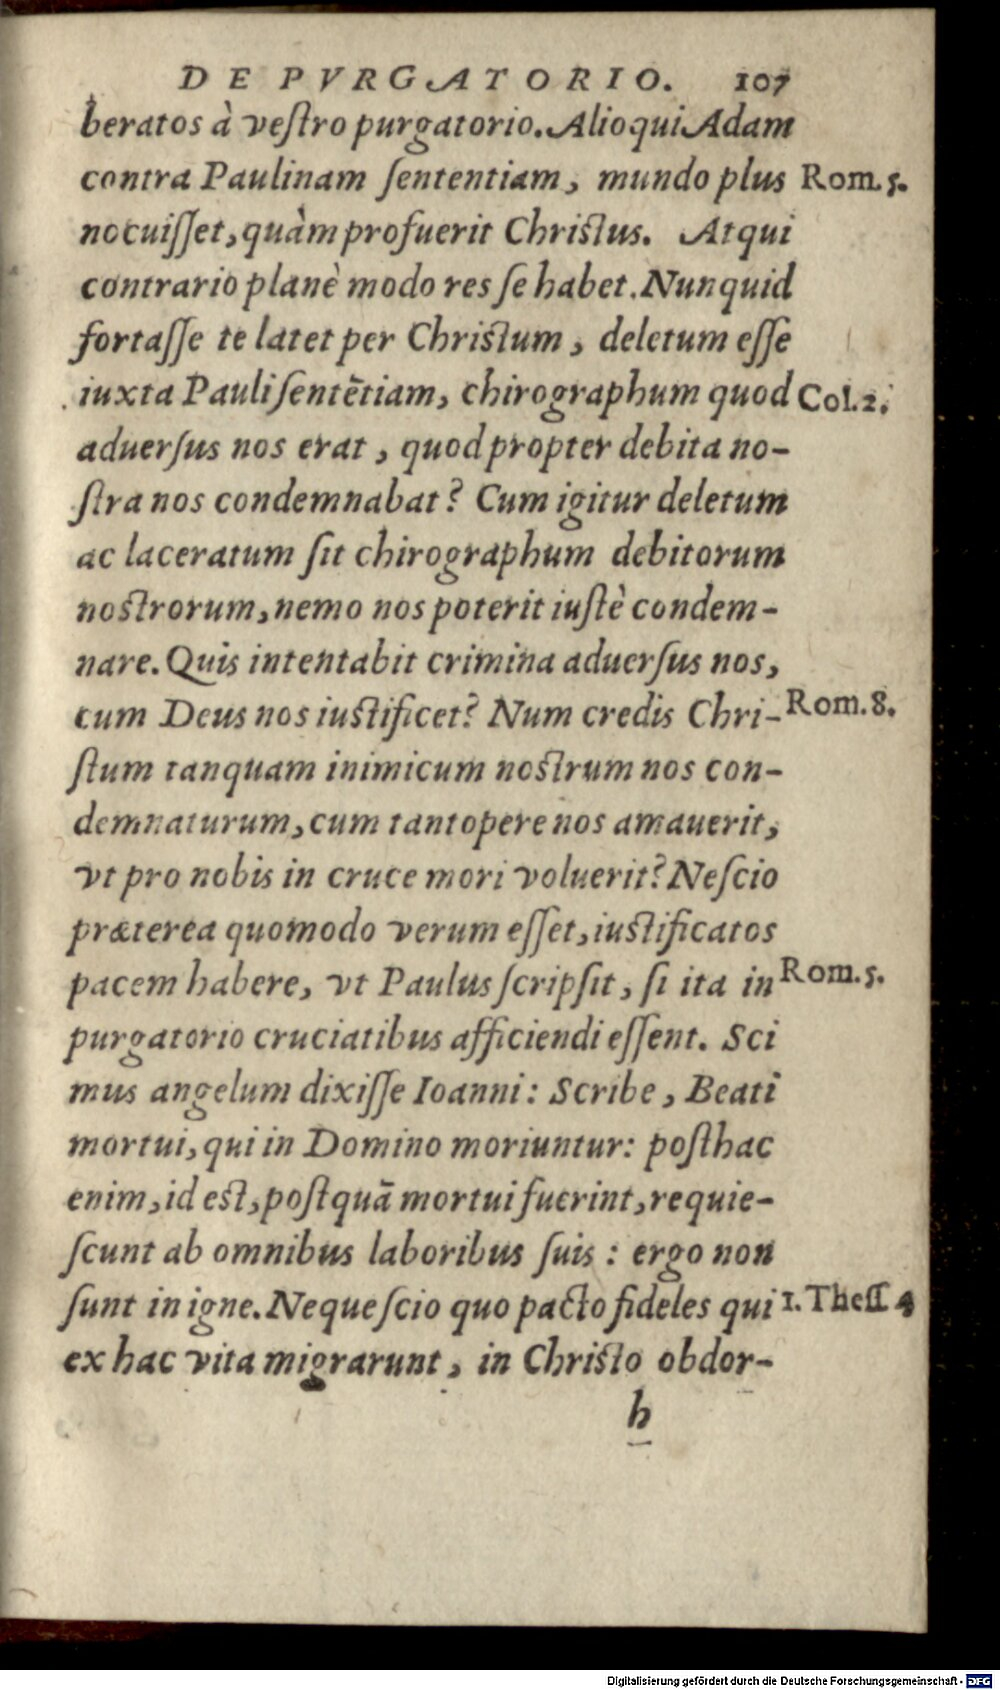 DE PVRGATORIO. 107
beratos à vestro purgatorio. Alioqui Adam
contra Paulinam sententiam, mundo plus Rom. 5.
nocuisset, quàm profuerit Christus. Atqui
contrario planè modo res se habet. Nunquid
fortasse te latet per Christum, deletum esse
iuxta Pauli sentētiam, chirographum quod Col. 2.
aduersus nos erat, quod propter debita no-
stra nos condemnabat? Cum igitur deletum
ac laceratum sit chirographum debitorum
nostrorum, nemo nos poterit iustè condem-
nare. Quis intentabit crimina aduersus nos,
cum Deus nos iustificet? Num credis Chri- Rom. 8.
stum tanquam inimicum nostrum nos con-
demnaturum, cum tantopere nos amauerit,
vt pro nobis in cruce mori voluerit? Nescio
præterea quomodo verum esset, iustificatos
pacem habere, vt Paulus scripsit, si ita in Rom. 5.
purgatorio cruciatibus afficiendi essent. Sci
mus angelum dixisse Ioanni: Scribe, Beati
mortui, qui in Domino moriuntur: posthac
enim, id est, postquā mortui fuerint, requie-
scunt ab omnibus laboribus suis: ergo non
sunt in igne. Neque scio quo pacto fideles qui 1. Thess. 4
ex hac vita migrarunt, in Christo obdor-
h
Digitalisierung gefördert durch die Deutsche Forschungsgemeinschaft - DFG